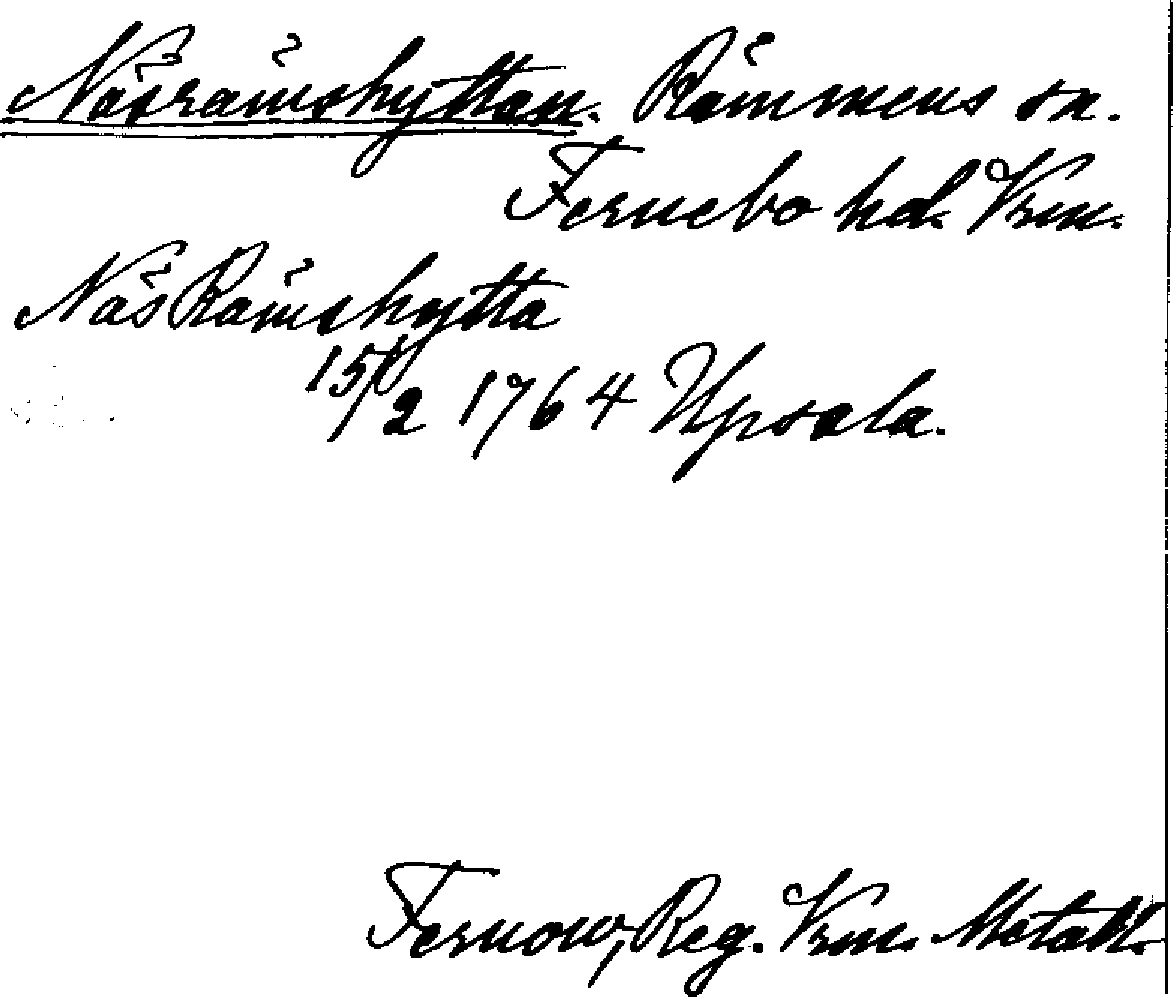 Näsrämshyttan. Rämmens sn.
Fernebo hd. Vrm.
Näs Rämshytta
15/2 1764 Upsala.
Fernow, Reg. Vrm.